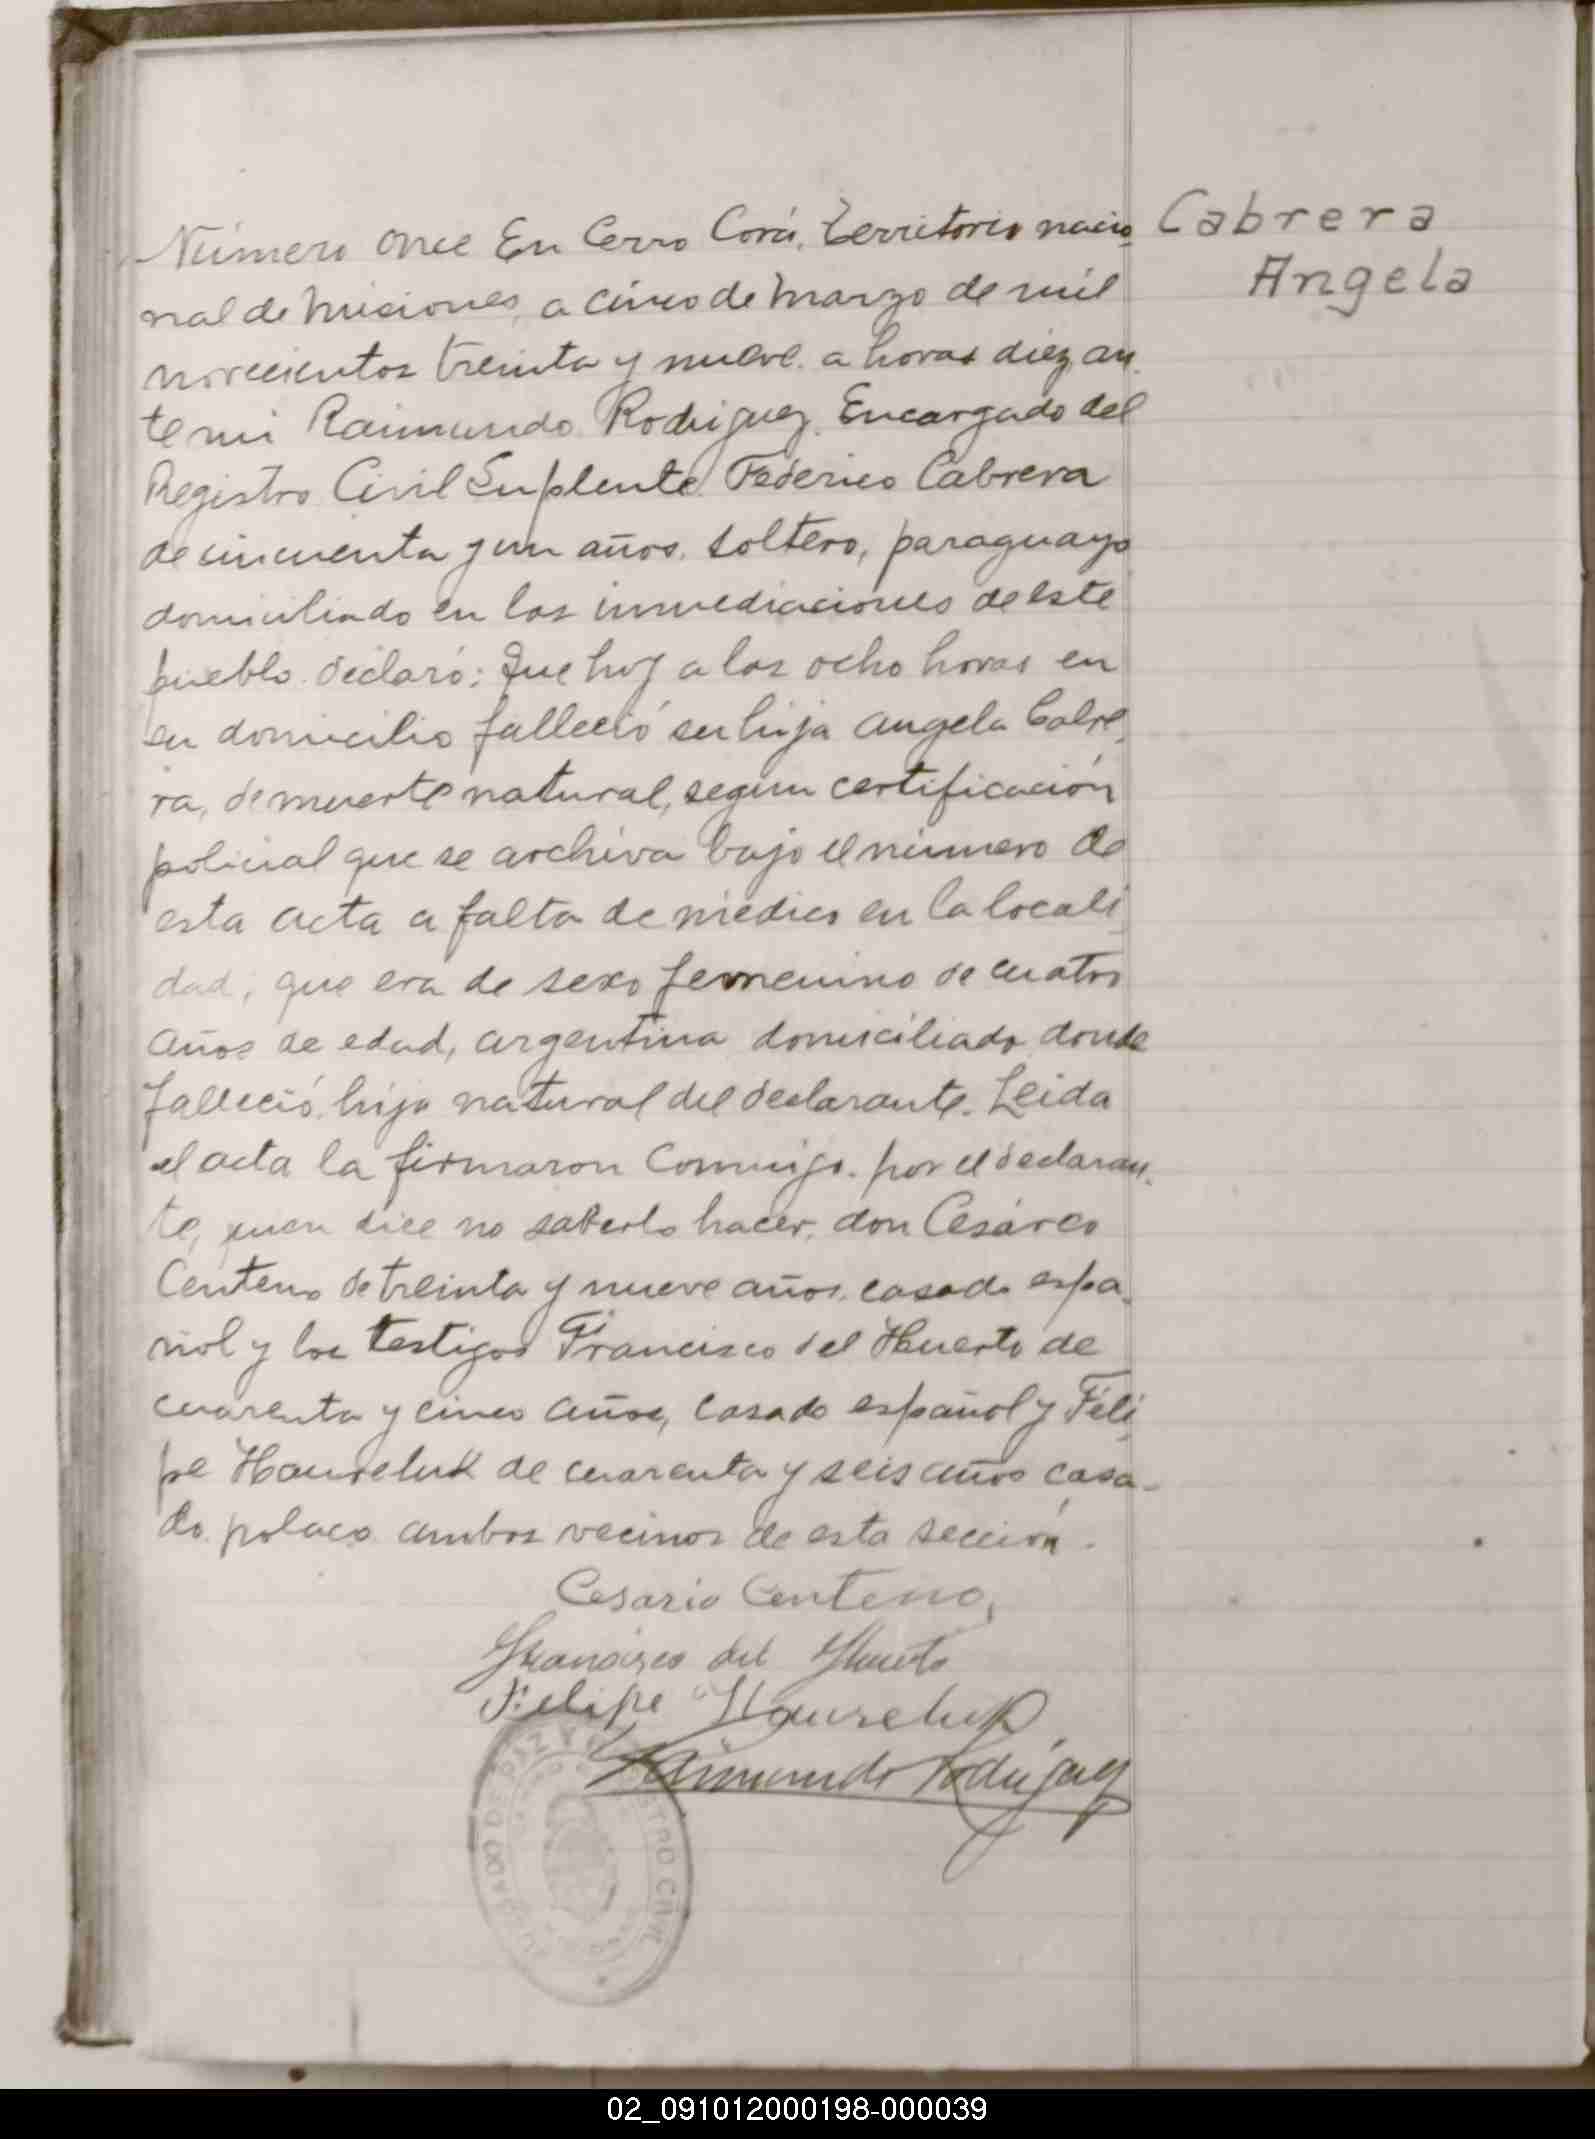 Número once En Cerro Corá, territorio nacio
nal de Misiones, a cinco de Marzo de mil
novecientos treinta y nueve. a horas diez, an
te mi Raimundo Rodriguez. Encargado del
Registro Civil Suplente Federico Cabrera
de cincuenta y un años. soltero, paraguayo
domiciliado en las inmediaciones de este
pueblo. declaró: Que hoy a las ocho horas en
su domicilio falleció su hija Angela Cabre
ra, de muerte natural, segun certificación
policial que se archiva bajo el número de
esta acta a falta de médico en la locali
dad, que era de sexo femenino de cuatro
años de edad, argentina domiciliado donde
falleció hija natural del declarante. Leida
el acta la firmaron conmigo. por el declaran
te, quien dice no saberlo hacer, don Cesáreo
Centeno de treinta y nueve años. casado espa
ñol y los testigos Francisco del Huerto de
cuarenta y cinco años, casado español y Féli
pe Haureluk de cuarenta y seis años casa-
do. polaco ambos vecinos de esta sección.
Cesario Centeno,
Francisco del Huerto
Felipe Haureluk
Raimundo Rodriguez
JUZGADO DE PAZ Y REGISTRO CIVIL
Cabrera
Angela
02_091012000198-000039